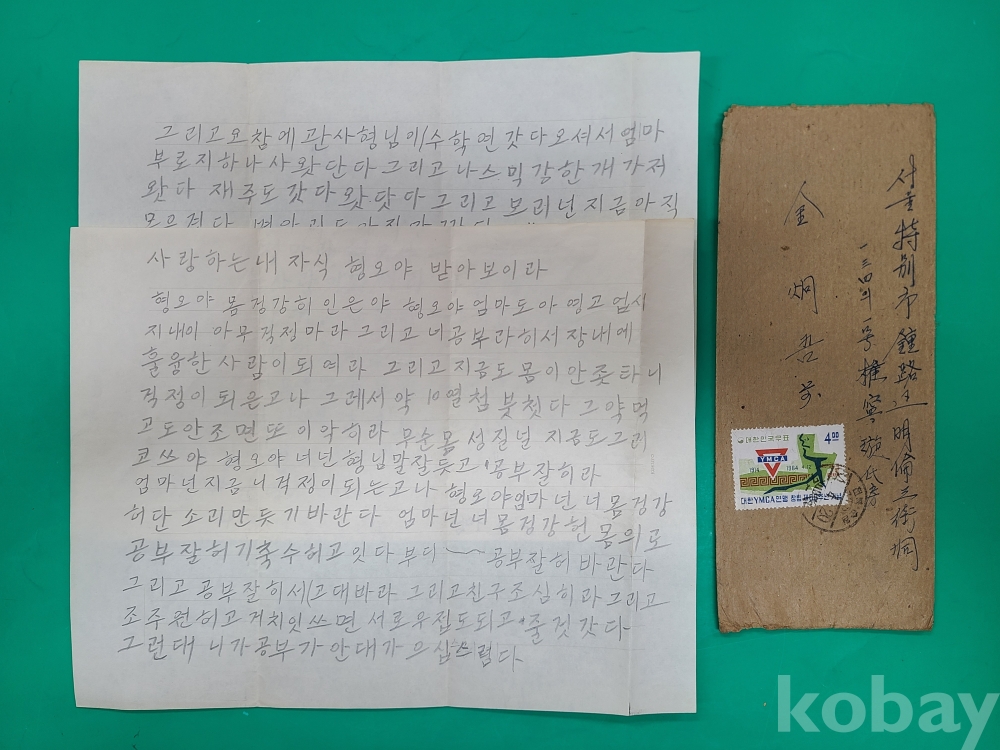 그리고요참에관사형님이(수학연갓다오셔서엄마
부로지하나사왓단다그리고나스믹감한개가저
왓다 재주도갓다왓닷다그리고보리넌지금아직
사랑하는내 자식 형오야 받아보이라
형오야 몸정강히 인은야 형오야엄마도아영고업시
지내이아무걱정마라그리고너공부라히서장내에
훌융한사람이되여라 그리고지금도몸이안좃타니
걱정이되은고나 그레서약 10열첨붓첫다그약먹
고도안조면또이약히라무순몸성질닐지금도그리
코쓰야 형오야너넌형님말잘듯고공부잘히라
엄마넌지금니걱정이되는고나 형오야엄마넌너몸정강
허단 소리만듯기바란다 엄마넌너몸정강헌몸의로
공부잘허기축수허고잇다부디 공부잘히바란다
그리고공부잘히세(고대바라 그리고친구조심히라그리고
조주원히고거치잇쓰면서로우접도되고줄것갓다
그런대 니가공부가안대가으삽스럽다
서울特別市鍾路区明倫三街洞
一三四의一号
金炯
대한민국우표
4 00
YMCA
1914 1964
대한YMCA연맹
kobay